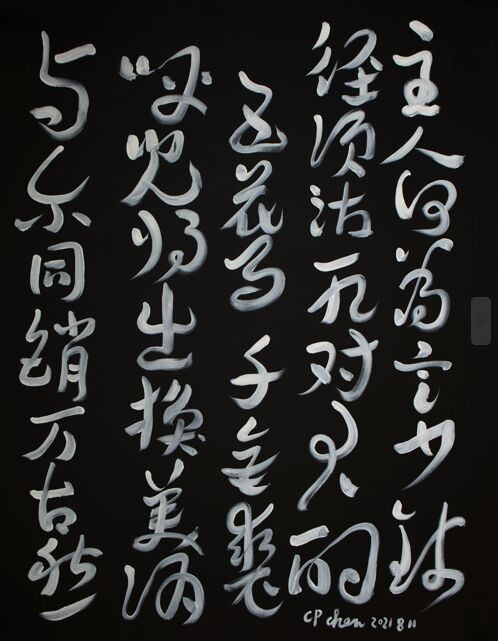 主人何为言少钱
径须沽取对君酌
五花马 千金裘
呼儿将出换美酒
与尔同销万古愁
CP chen 2021 8 11